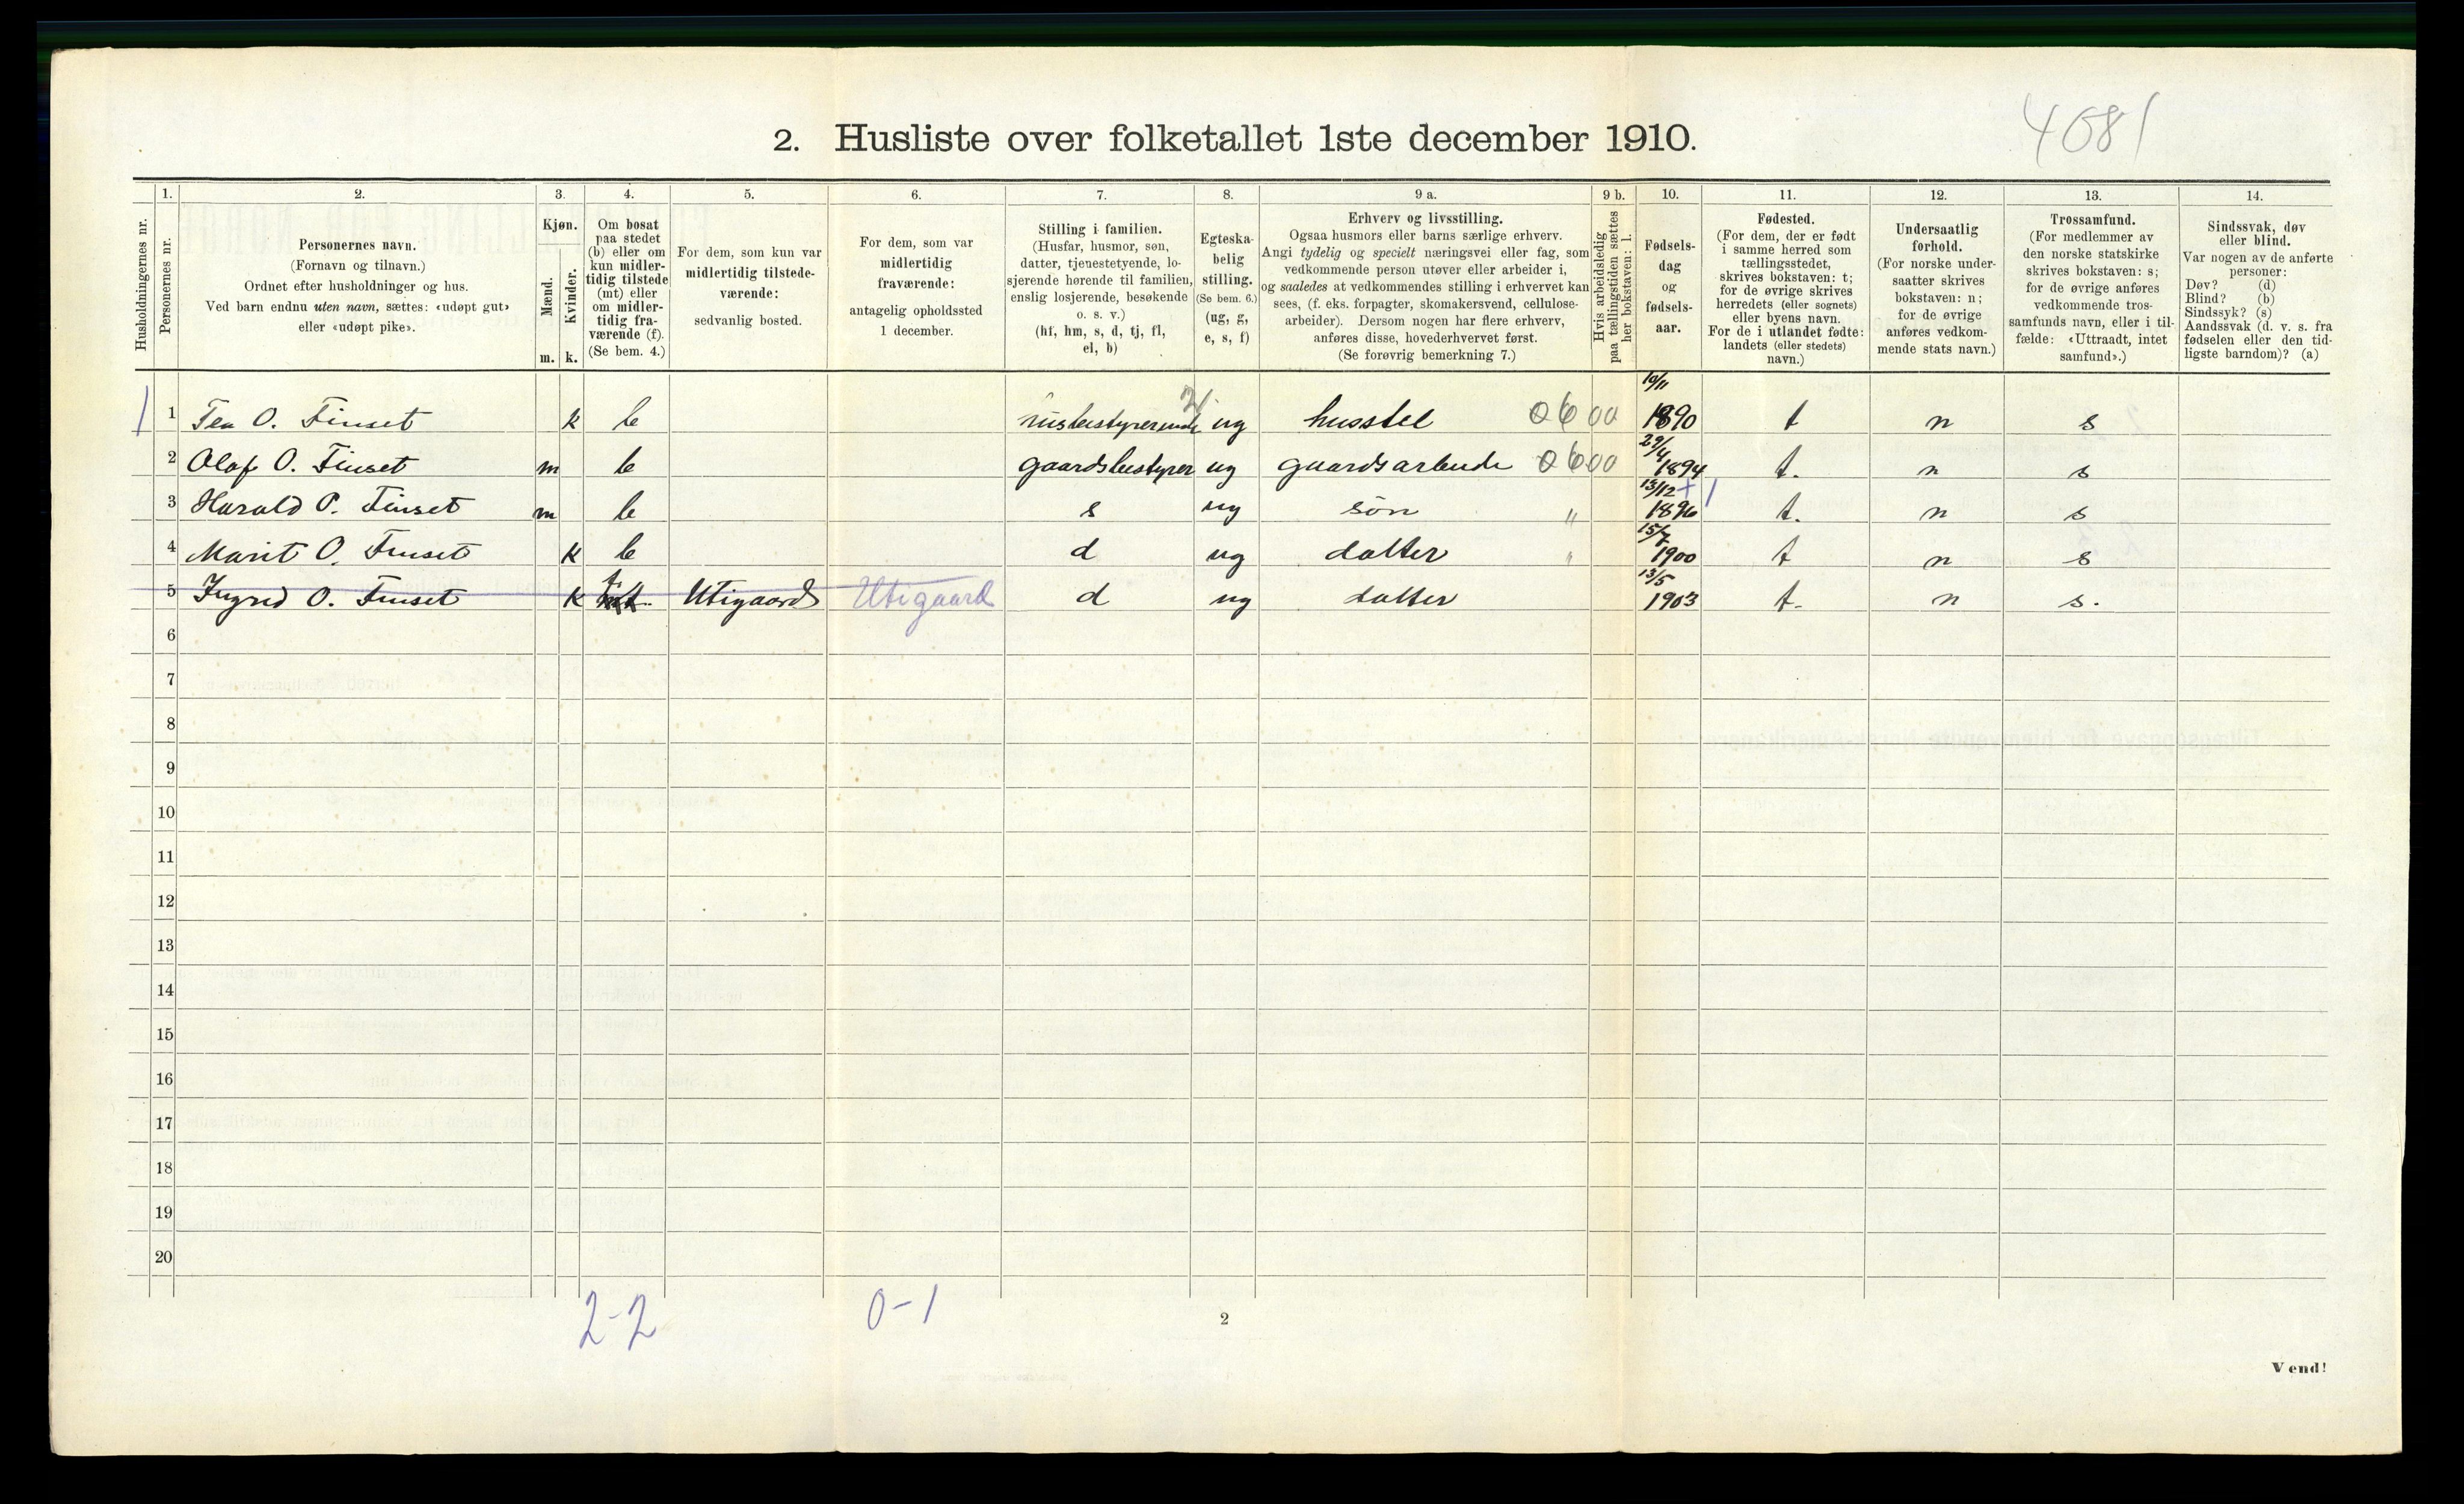 4681
2. Husliste over folketallet 1ste december 1910.
Husholdningernes nr.
1.
Personernes nr.
2.
Personernes navn.
(Fornavn og tilnavn.)
Ordnet efter husholdninger og hus.
Ved barn endnu uten navn, sættes: «udøpt gut»
eller «udøpt pike».
3.
Kjøn.
Mænd.
m.
Kvinder.
k.
4.
Om bosat
paa stedet
(b) eller om
kun midler-
tidig tilstede
(mt) eller
om midler-
tidig fra-
værende (f).
(Se bem. 4.)
5.
For dem, som kun var
midlertidig tilstede-
værende:
sedvanlig bosted.
6.
For dem, som var
midlertidig
fraværende:
antagelig opholdssted
1 december.
7.
Stilling i familien.
(Husfar, husmor, søn,
datter, tjenestetyende, lo-
sjerende hørende til familien,
enslig losjerende, besøkende
o. s. v.)
(hf, hm, s, d, tj, fl,
el, b)
8.
Egteska-
belig
stilling.
(Se bem. 6.)
(ug, g,
e, s, f)
9 a.
Erhverv og livsstilling.
Ogsaa husmors eller barns særlige erhverv.
Angi tydelig og specielt næringsvei eller fag, som
vedkommende person utøver eller arbeider i,
og saaledes at vedkommendes stilling i erhvervet kan
sees, (f. eks. forpagter, skomakersvend, cellulose-
arbeider). Dersom nogen har flere erhverv,
anføres disse, hovederhvervet først.
(Se forøvrig bemerkning 7.)
9 b.
Hvis arbeidsledig
paa tællingstiden sættes
her bokstaven: l.
10.
Fødsels-
dag
og
fødsels-
aar.
11.
Fødested.
(For dem, der er født
i samme herred som
tællingsstedet,
skrives bokstaven: t;
for de øvrige skrives
herredets (eller sognets)
eller byens navn.
For de i utlandet fødte:
landets (eller stedets)
navn.)
12.
Undersaatlig
forhold.
(For norske under-
saatter skrives
bokstaven: n;
for de øvrige
anføres vedkom-
mende stats navn.)
13.
Trossamfund.
(For medlemmer av
den norske statskirke
skrives bokstaven: s;
for de øvrige anføres
vedkommende tros-
samfunds navn, eller i til-
fælde: «Uttraadt, intet
samfund».)
14.
Sindssvak, døv
eller blind.
Var nogen av de anførte
personer:
Døv? (d)
Blind? (b)
Sindssyk? (s)
Aandssvak (d. v. s. fra
fødselen eller den tid-
ligste barndom)? (a)
1 1 Tea O. Finset k b husbestyrerinde 21 ug husstel 0600 10/11 1890 t n s
2 Olaf O. Finset m b gaardsbestyrer ug gaardsarbeide 0600 29/4 1894 t. n s
3 Harald O. Finset m b s ug søn " 13/12 1896 + 1 t. n s
4 Marit O. Finset k b d ug datter " 15/7 1900 t n s
5 Ingrid O. Finset k f. mt. Utigaard Utigaard d ug datter 13/5 1903 t. n s.
6
7
8
9
10
11
12
13
14
15
16
17
18
19
20
2-2 0-1
2
Vend!